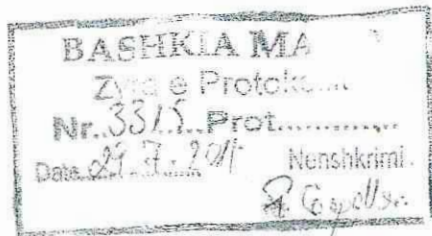 BASHKIA MA
Zyra e Protoko
Nr. 3315 Prot.............
Data 29.7.201 Nenshkrimi.